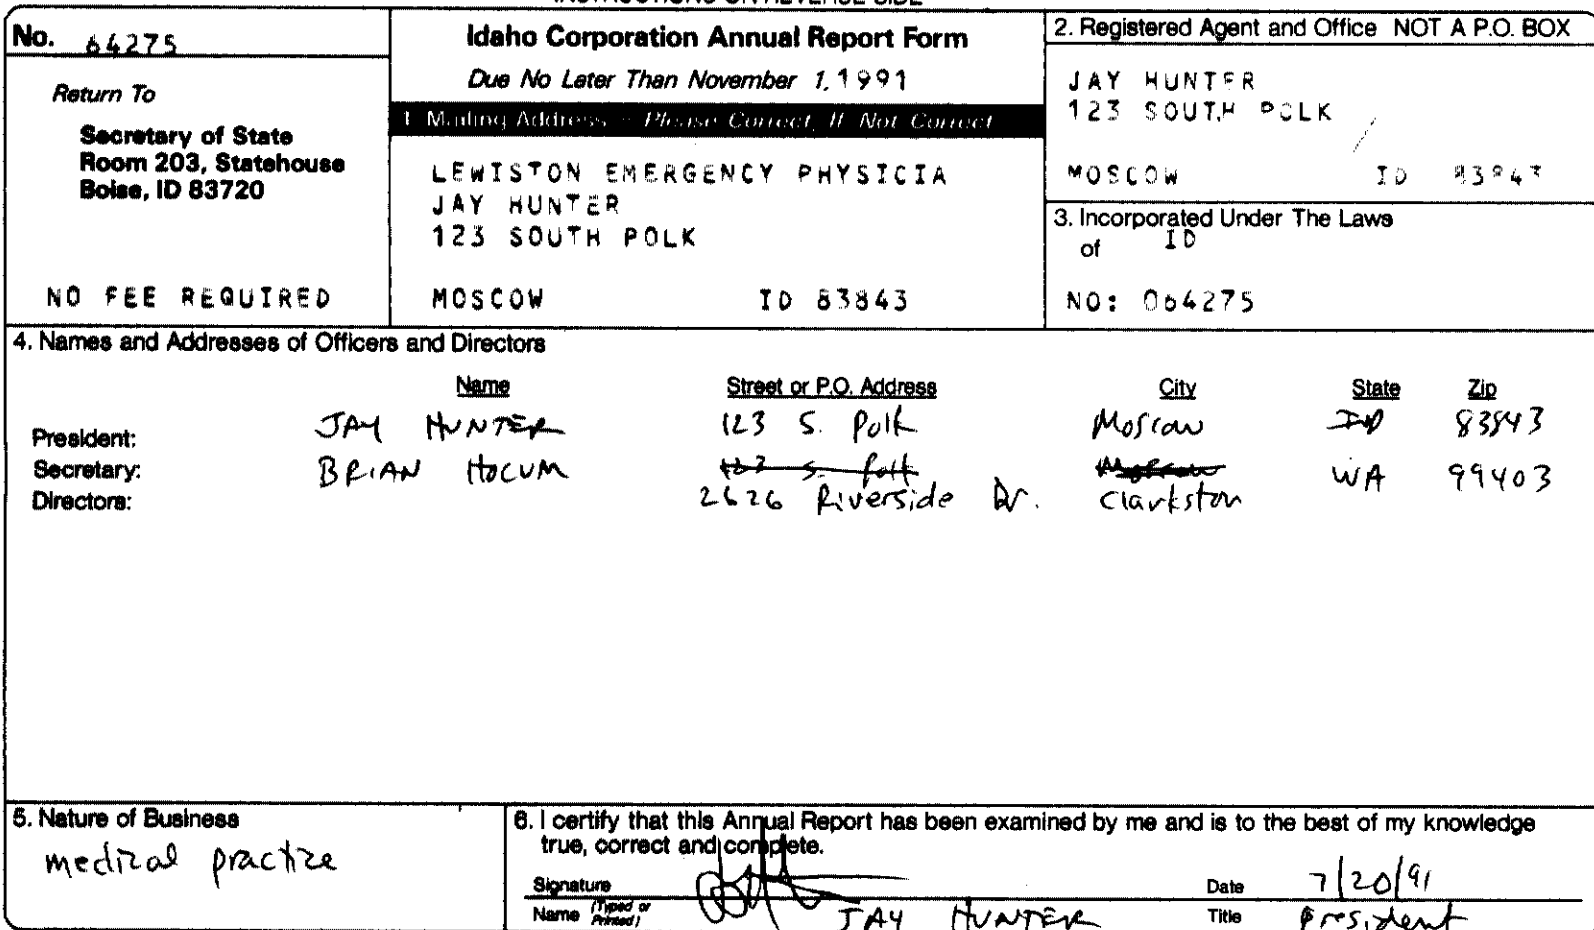 INSTRUCTIONS ON REVERSE SIDE
No. 64275
Return To
Secretary of State
Room 203, Statehouse
Boise, ID 83720
NO FEE REQUIRED
Idaho Corporation Annual Report Form
Due No Later Than November 1, 1991
1. Mailing Address - Please Correct, If Not Correct
LEWISTON EMERGENCY PHYSICIA
JAY HUNTER
123 SOUTH POLK
MOSCOW ID 83843
2. Registered Agent and Office NOT A P.O. BOX
JAY HUNTER
123 SOUTH POLK
MOSCOW ID 83843
3. Incorporated Under The Laws
of ID
NO: 064275
4. Names and Addresses of Officers and Directors
Name Street or P.O. Address City State Zip
President: JAY HUNTER 123 S. Polk Moscow ID 83843
Secretary: BRIAN HOCUM 123 S. Polk Moscow WA 99403
Directors: 2626 Riverside Dr. Clarkston
5. Nature of Business
medical practice
6. I certify that this Annual Report has been examined by me and is to the best of my knowledge
true, correct and complete.
Signature Date 7/20/91
Name (Typed or Printed) JAY HUNTER Title President